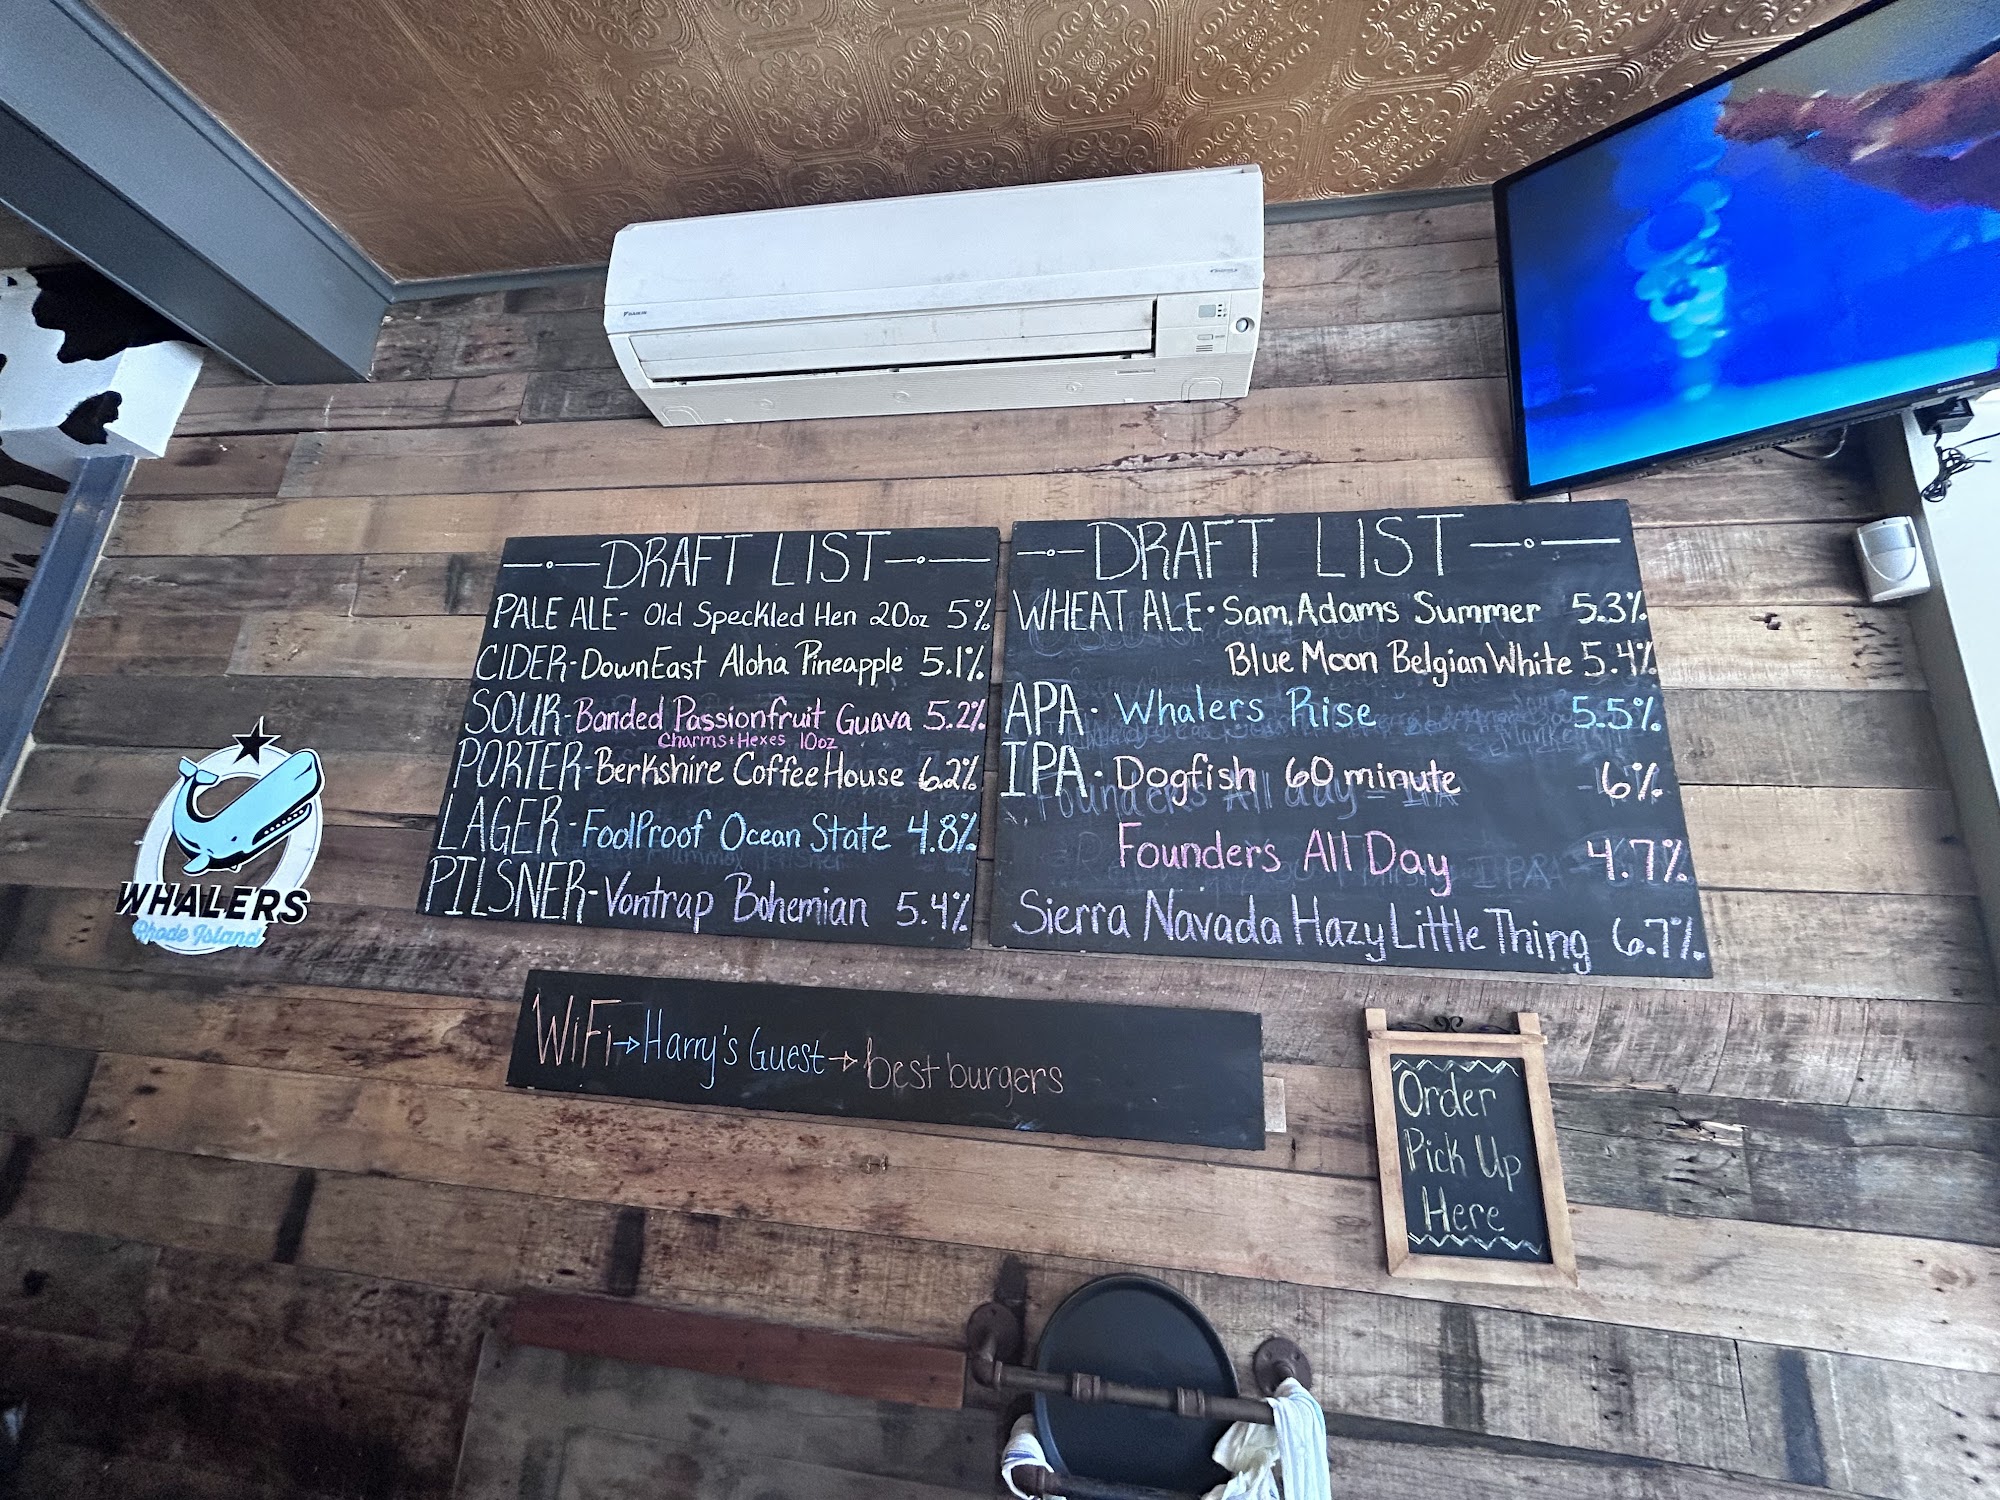 DRAFT LIST
PALE ALE- Old Speckled Hen 20oz 5%
CIDER-DownEast Aloha Pineapple 5.1%
SOUR-Banded Passionfruit Guava 5.2%
Charms+Hexes 10oz
PORTER-Berkshire CoffeeHouse 6.2%
LAGER-FoolProof Ocean State 4.8%
PILSNER-Vontrap Bohemian 5.4%
DRAFT LIST
WHEAT ALE·Sam Adams Summer 5.3%
Blue Moon Belgian White 5.4%
APA· Whalers Rise 5.5%
IPA· Dogfish 60 minute 6%
Founders All Day 4.7%
Sierra Navada Hazy Little Thing 6.7%
WHALERS
Rhode Island
WiFi→Harry's Guest→best burgers
Order
Pick Up
Here
DAIKIN
SAMSUNG